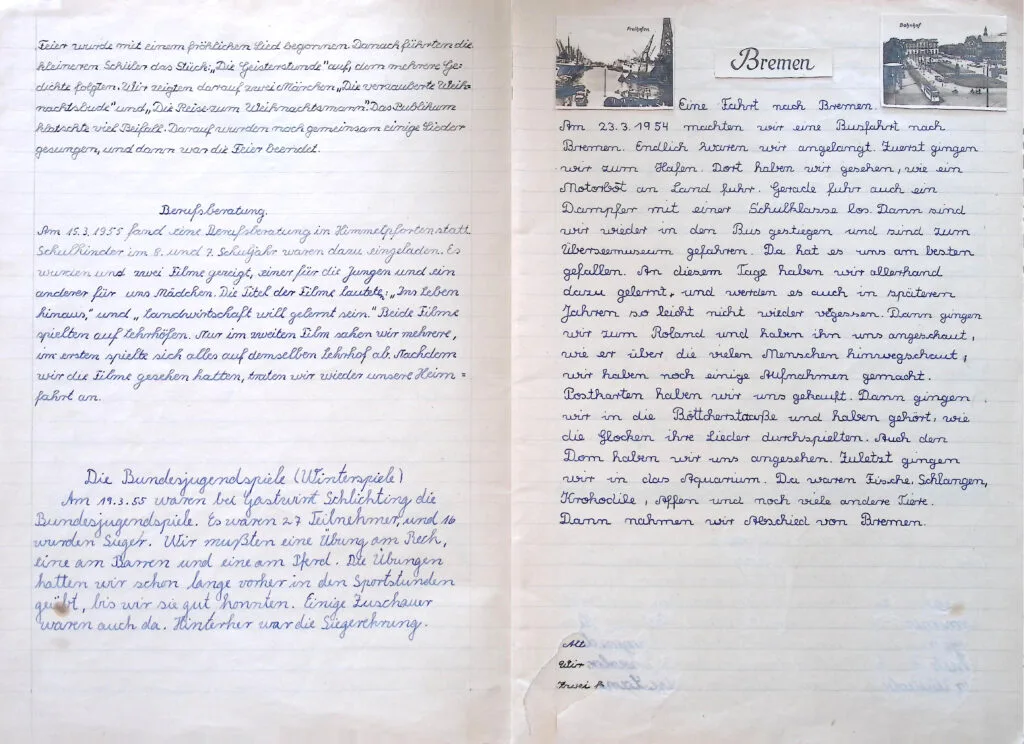 Feier wurde mit einem fröhlichen Lied begonnen. Danach führten die
kleineren Schüler das Stück: „Die Geisterstunde" auf, dem mehrere Ge-
dichte folgten. Wir zeigten darauf zwei Märchen „Die verzauberte Weih-
nachtsbude" und „Die Reise zum Weihnachtsmann". Das Publikum
klatschte viel Beifall. Darauf wurden noch gemeinsam einige Lieder
gesungen, und dann war die Feier beendet.
Berufsberatung.
Am 15.3.1955 fand eine Berufsberatung in Himmelpforten statt.
Schulkinder im 8. und 7. Schuljahr waren dazu eingeladen. Es
wurden und zwei Filme gezeigt, einer für die Jungen und ein
anderer für uns Mädchen. Die Titel der Filme lautete: „Ins Leben
hinaus," und „Landwirtschaft will gelernt sein." Beide Filme
spielten auf Lehrhöfen. Nur im zweiten Film sahen wir mehrere,
im ersten spielte sich alles auf demselben Lehrhof ab. Nachdem
wir die Filme gesehen hatten, traten wir wieder unsere Heim=
fahrt an.
Die Bundesjugendspiele (Winterspiele)
Am 19.3.55 waren bei Gastwirt Schlichting die
Bundesjugendspiele. Es waren 27 Teilnehmer, und 16
wurden Sieger. Wir mußten eine Übung am Reck,
eine am Barren und eine am Pferd. Die Übungen
hatten wir schon lange vorher in den Sportstunden
geübt, bis wir sie gut konnten. Einige Zuschauer
waren auch da. Hinterher war die Siegerehrung.
Freihafen
Bremen
Bahnhof
Eine Fahrt nach Bremen.
Am 23.3.1954 machten wir eine Busfahrt nach
Bremen. Endlich waren wir angelangt. Zuerst gingen
wir zum Hafen. Dort haben wir gesehen, wie ein
Motorboot an Land fuhr. Gerade fuhr auch ein
Dampfer mit einer Schulklasse los. Dann sind
wir wieder in den Bus gestiegen und sind zum
Überseemuseum gefahren. Da hat es uns am besten
gefallen. An diesem Tage haben wir allerhand
dazu gelernt, und werden es auch in späteren
Jahren so leicht nicht wieder vegessen. Dann gingen
wir zum Roland und haben ihn uns angeschaut,
wie er über die vielen Menschen hinwegschaut,
wir haben noch einige Aufnahmen gemacht.
Postkarten haben wir uns gekauft. Dann gingen
wir in die Böttcherstraße und haben gehört, wie
die Glocken ihre Lieder durchspielten. Auch den
Dom haben wir uns angesehen. Zuletzt gingen
wir in das Aquarium. Da waren Fische, Schlangen,
Krokodile, Affen und noch viele andere Tiere.
Dann nahmen wir Abschied von Bremen.
Wir
zwei